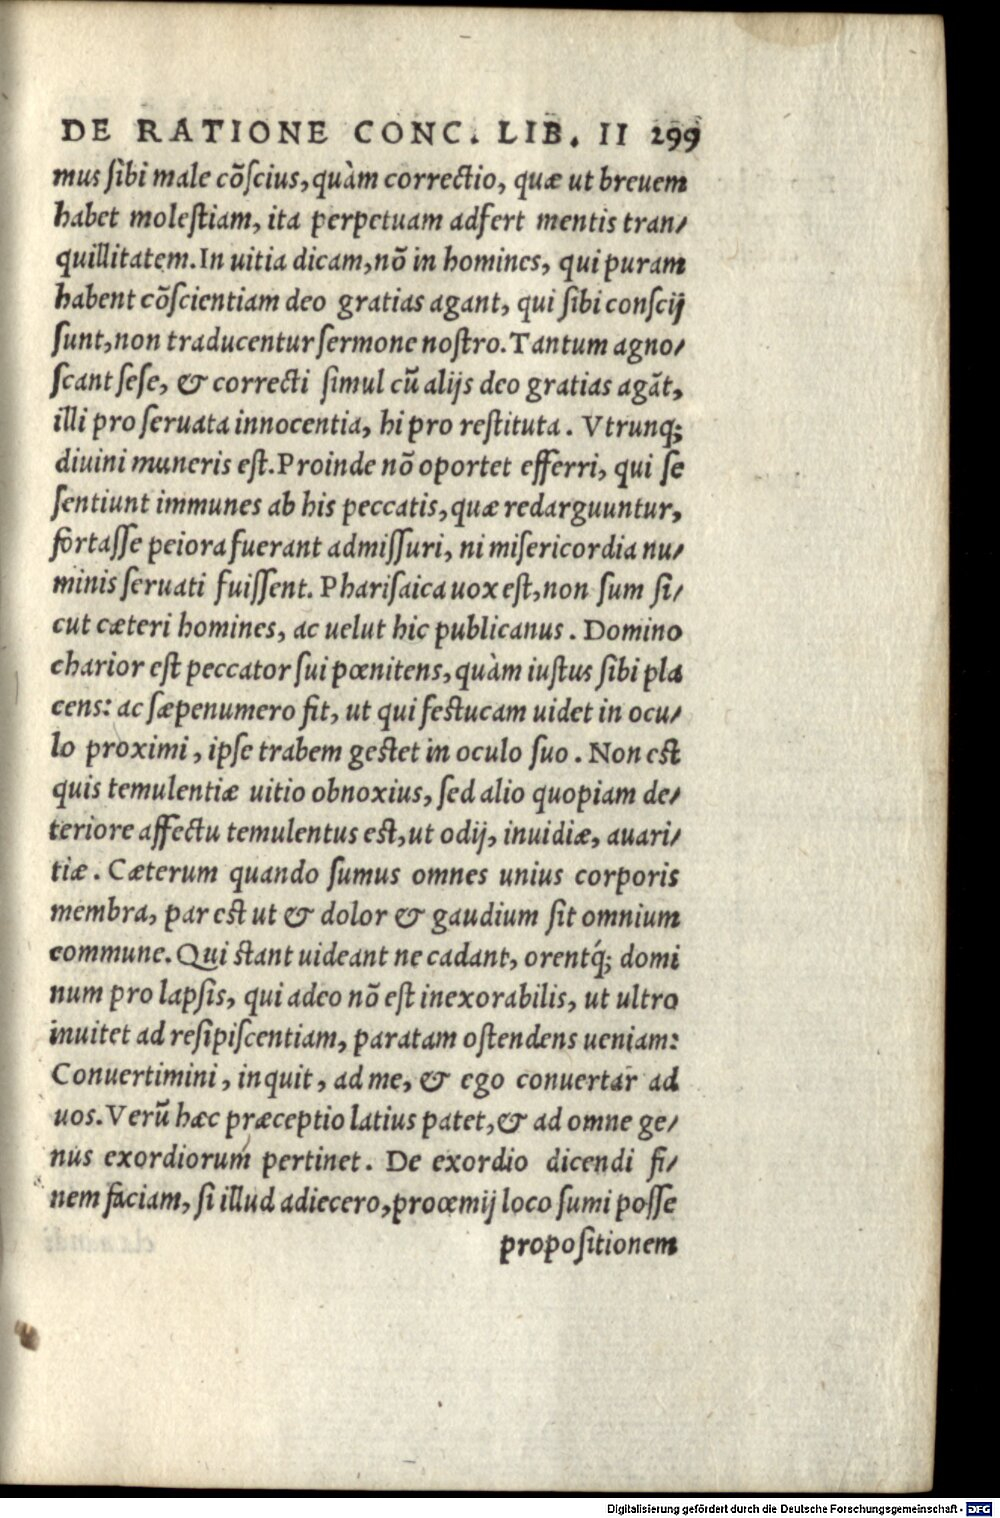 DE RATIONE CONC. LIB. II 299
mus sibi male cõscius, quàm correctio, quæ ut breuem
habet molestiam, ita perpetuam adfert mentis tran/
quillitatem. In uitia dicam, nõ in homines, qui puram
habent cõscientiam deo gratias agant, qui sibi conscij
sunt, non traducentur sermone nostro. Tantum agno/
scant sese, & correcti simul cũ alijs deo gratias agãt,
illi pro seruata innocentia, hi pro restituta. Vtrunq;
diuini muneris est. Proinde nõ oportet efferri, qui se
sentiunt immunes ab his peccatis, quæ redarguuntur,
fortasse peiora fuerant admissuri, ni misericordia nu/
minis seruati fuissent. Pharisaica uox est, non sum si/
cut cæteri homines, ac uelut hic publicanus. Domino
charior est peccator sui pœnitens, quàm iustus sibi pla
cens: ac sæpenumero fit, ut qui festucam uidet in ocu/
lo proximi, ipse trabem gestet in oculo suo. Non est
quis temulentiæ uitio obnoxius, sed alio quopiam de/
teriore affectu temulentus est, ut odij, inuidiæ, auari/
tiæ. Cæterum quando sumus omnes unius corporis
membra, par est ut & dolor & gaudium sit omnium
commune. Qui stant uideant ne cadant, orentq́; domi
num pro lapsis, qui adeo nõ est inexorabilis, ut ultro
inuitet ad resipiscentiam, paratam ostendens ueniam:
Conuertimini, inquit, ad me, & ego conuertar ad
uos. Verũ hæc præceptio latius patet, & ad omne ge/
nus exordiorum pertinet. De exordio dicendi fi/
nem faciam, si illud adiecero, prooemij loco sumi posse
propositionem
Digitalisierung gefördert durch die Deutsche Forschungsgemeinschaft - DFG